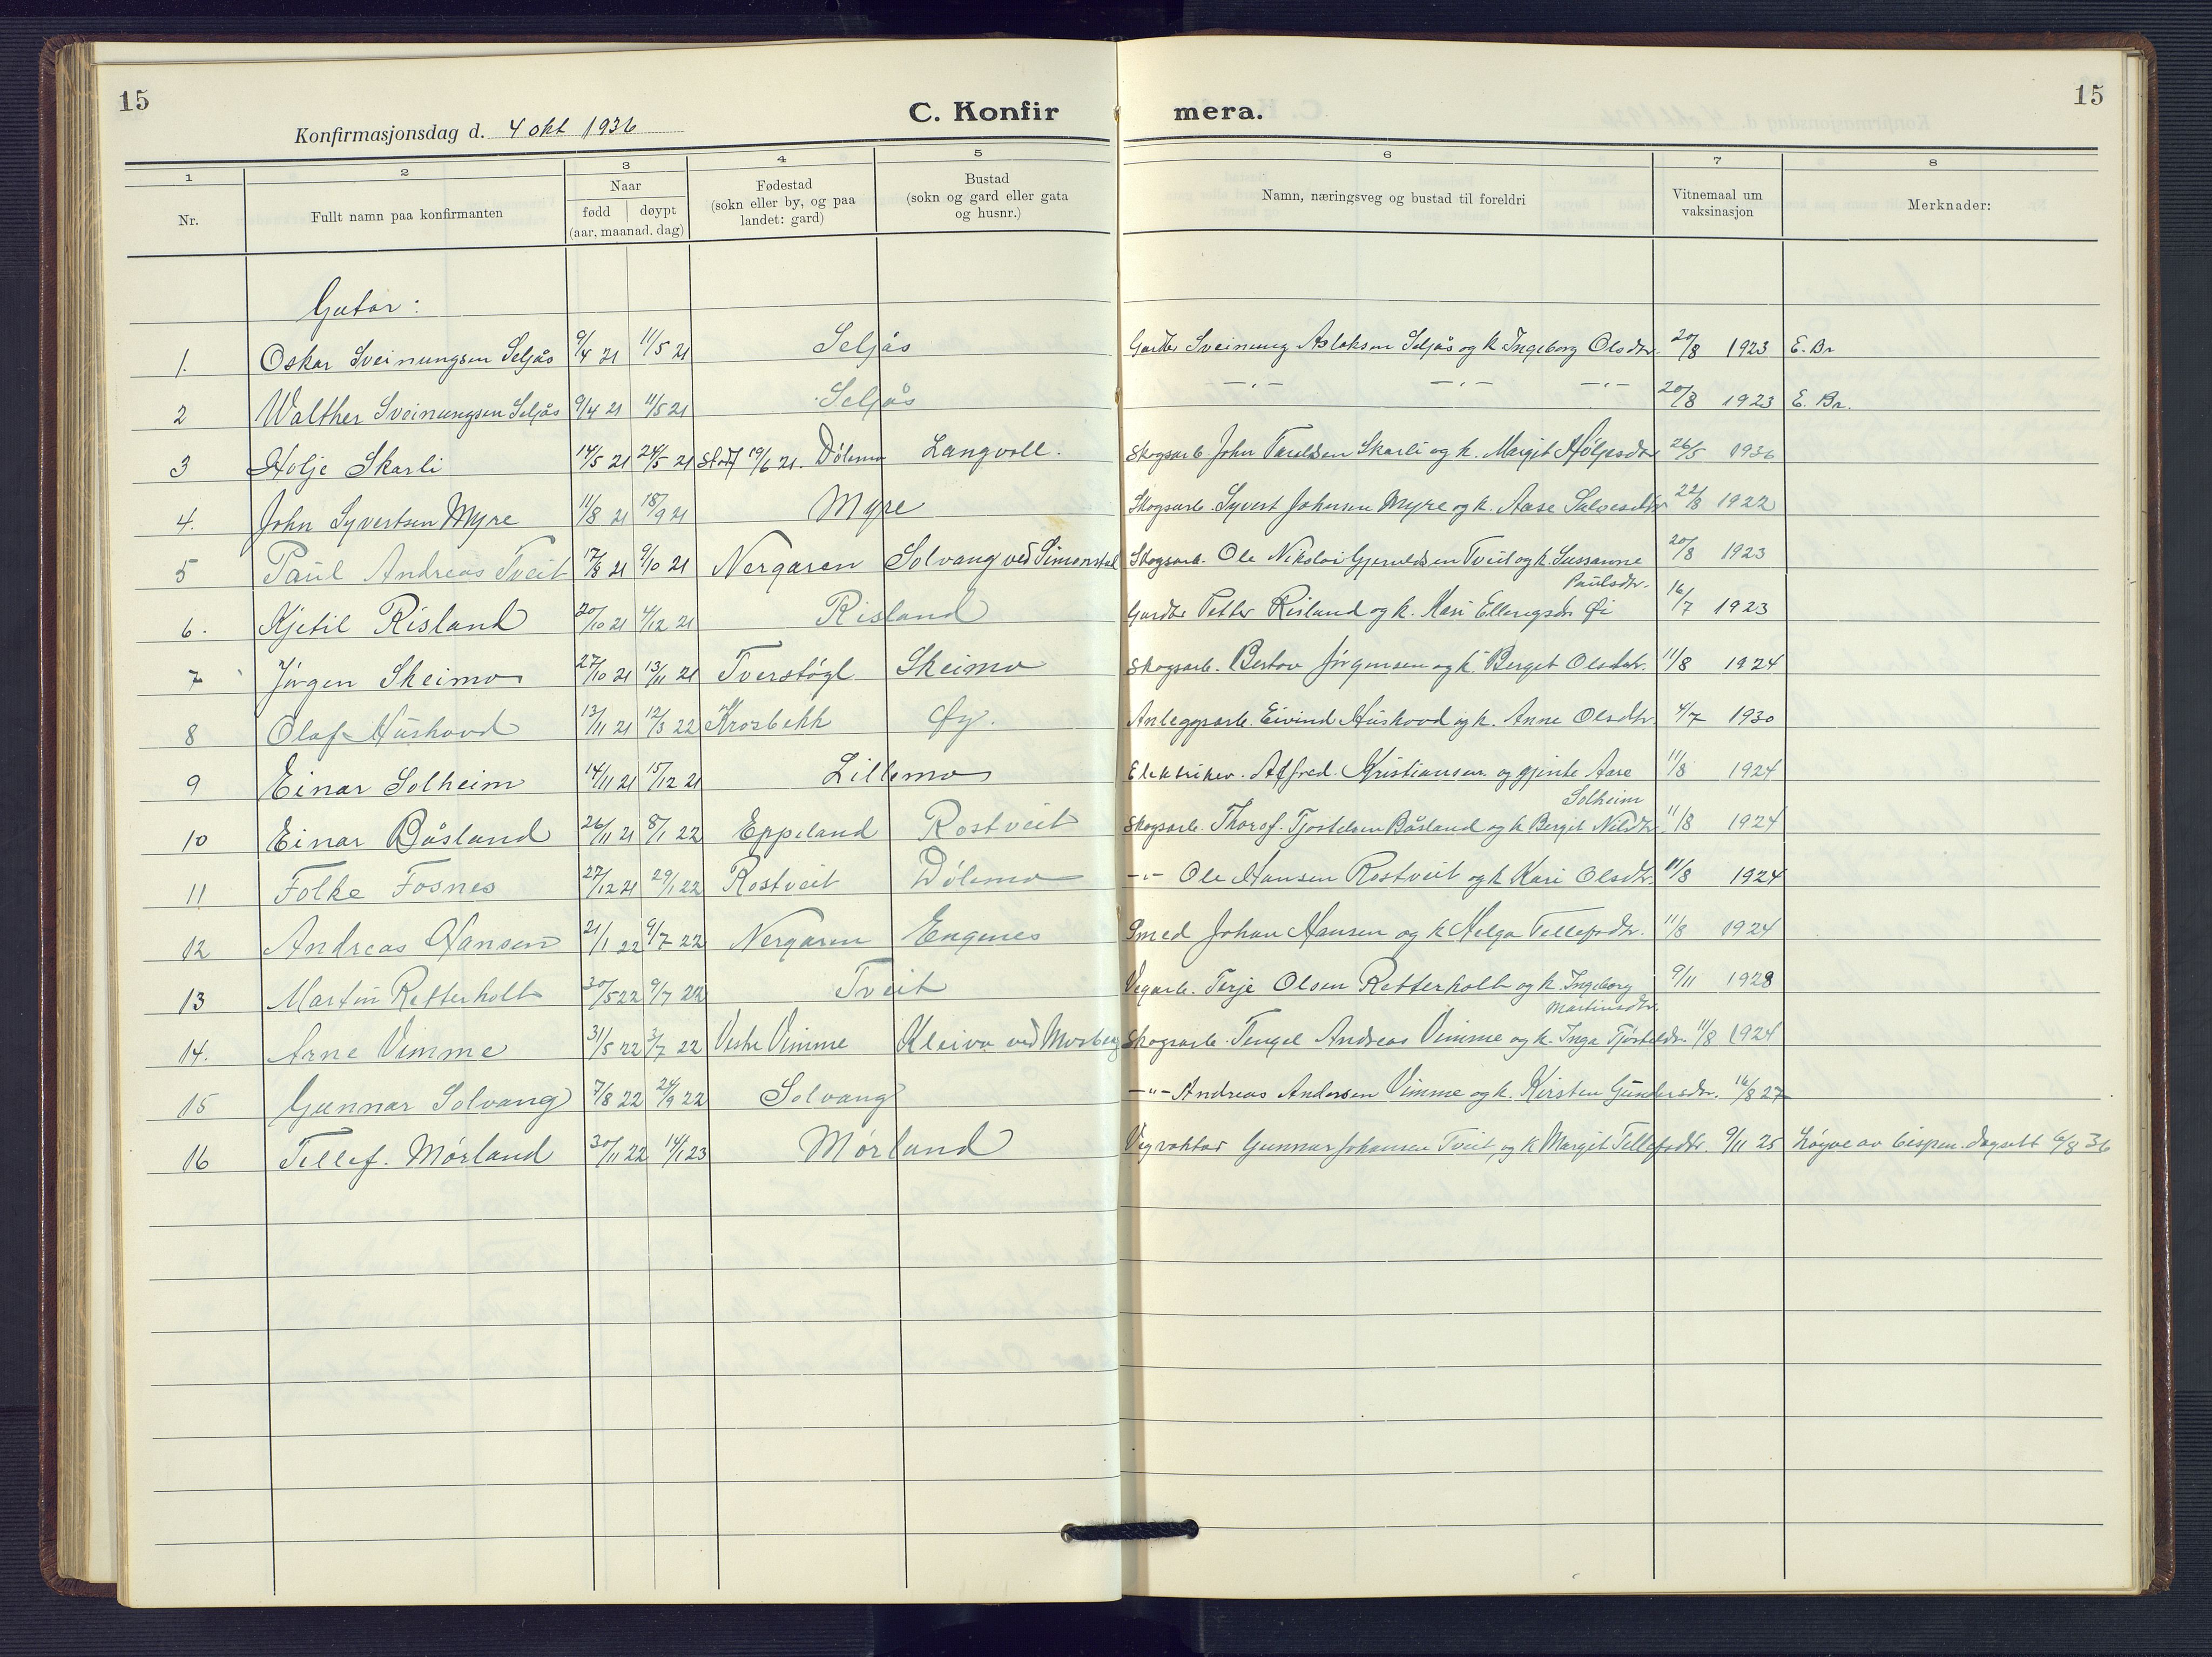 15
C. Konfir
mera.
15
Konfirmasjonsdag d. 4 okt 1936
1 2 3 4 5 6 7 8
Nr.
Fullt namn paa konfirmanten
Naar
fødd døypt
(aar, maanad. dag)
Fødestad
(sokn eller by, og paa
landet: gard)
Bustad
(sokn og gard eller gata
og husnr.)
Namn, næringsveg og bustad til foreldri
Vitnemaal um
vaksinasjon
Merknader:
Gutar:
1. Oskar Sveinungsen Seljås 9/4 21 11/5 21 Seljås Gardbr Sveinung Aslaksen Seljås og k Ingeborg Olsdtr. 20/8 1923 E. Br
2 Walther Sveinungsen Seljås 9/4 21 11/5 21 Seljås -"- -"- -"- 20/8 1923 E. Br.
3 Holje Skarli 14/5 21 24/5 21 Stadf 19/6 21. Dölemo Langvoll. Skogsarb. John Skarli og k. Margit Höljesdtr 26/5 1936
4. John Syvertsen Myre 11/8 21 18/9 21 Myre Skogsarb. Syvert Johnsen Myre og k. Aase Salvesdtr 22/8 1922
5 Paul Andreas Tveit 17/8 21 9/10 21 Nergaren Solvang ved Simonstad Skogsarb. Ole Nikolai Gjeruldsen Tveit og k. Sussanne 20/8 1923
Paulsdtr.
6. Kjetil Risland 20/10 21 4/12 21 Risland Gardbr Petter Risland og k. Kari Ellevgsdr 16/7 1923
7 Jörgen Skeimo 27/10 21 13/11 21 Tverstögl Skeimo Skogsarb. Bertov Jörgensen og k. Berget Olsdatr. 11/8 1924
8 Olaf Hushovd 13/11 21 12/3 22 Krosbekk Öy. Anleggsarb. Eivind Hushovd og k. Anne Olsdtr. 4/7 1930
9 Einar Solheim 14/11 21 15/12 21 Lillemo Elektriker. Alfred. Kristiansen og gjente Aase 11/8 1924
Solheim
10 Einar Båsland 26/11 21 8/1 22 Eppeland Rostveit Skogsarb. Thorof. Tjostolsen Båsland og k Bergit Nilsdtr. 11/8 1924
11 Folke Fosnes 27/12 21 29/1 22 Rostveit Dölemo -"- Ole Hansen Rostveit og k Kari Olsdtr. 11/8 1924
12 Andreas Hansen 21/1 22 9/7 22 Nergaren Engenes Smed Johan Hansen og k Helga Tellefsdtr. 11/8 1924
13 Martin Retterholt 30/5 22 9/7 22 Tveit Vegarb. Terje Olsen Retterholt og k. Ingeborg 9/11 1928
Martinsdtr.
14. Arne Vimme 31/5 22 3/7 22 Vestre Vimme Kleiva ved Mosberg Skogsarb. Tengel Andreas Vimme og k. Inga Tjöstolsdr. 11/8 1924
15 Gunnar Solvang 7/8 22 24/9 22 Solvang -"- Andreas Andersen Vimme og k. Kirsten Gundersdtr. 16/8 27
16 Tellef. Mörland 30/11 22 14/1 23 Mörland Vegvaktar Gunnar Johansen Tveit, og k Margit Tellefsdtr. 9/11 25 Löyve av bispen. dagsett 6/8 36